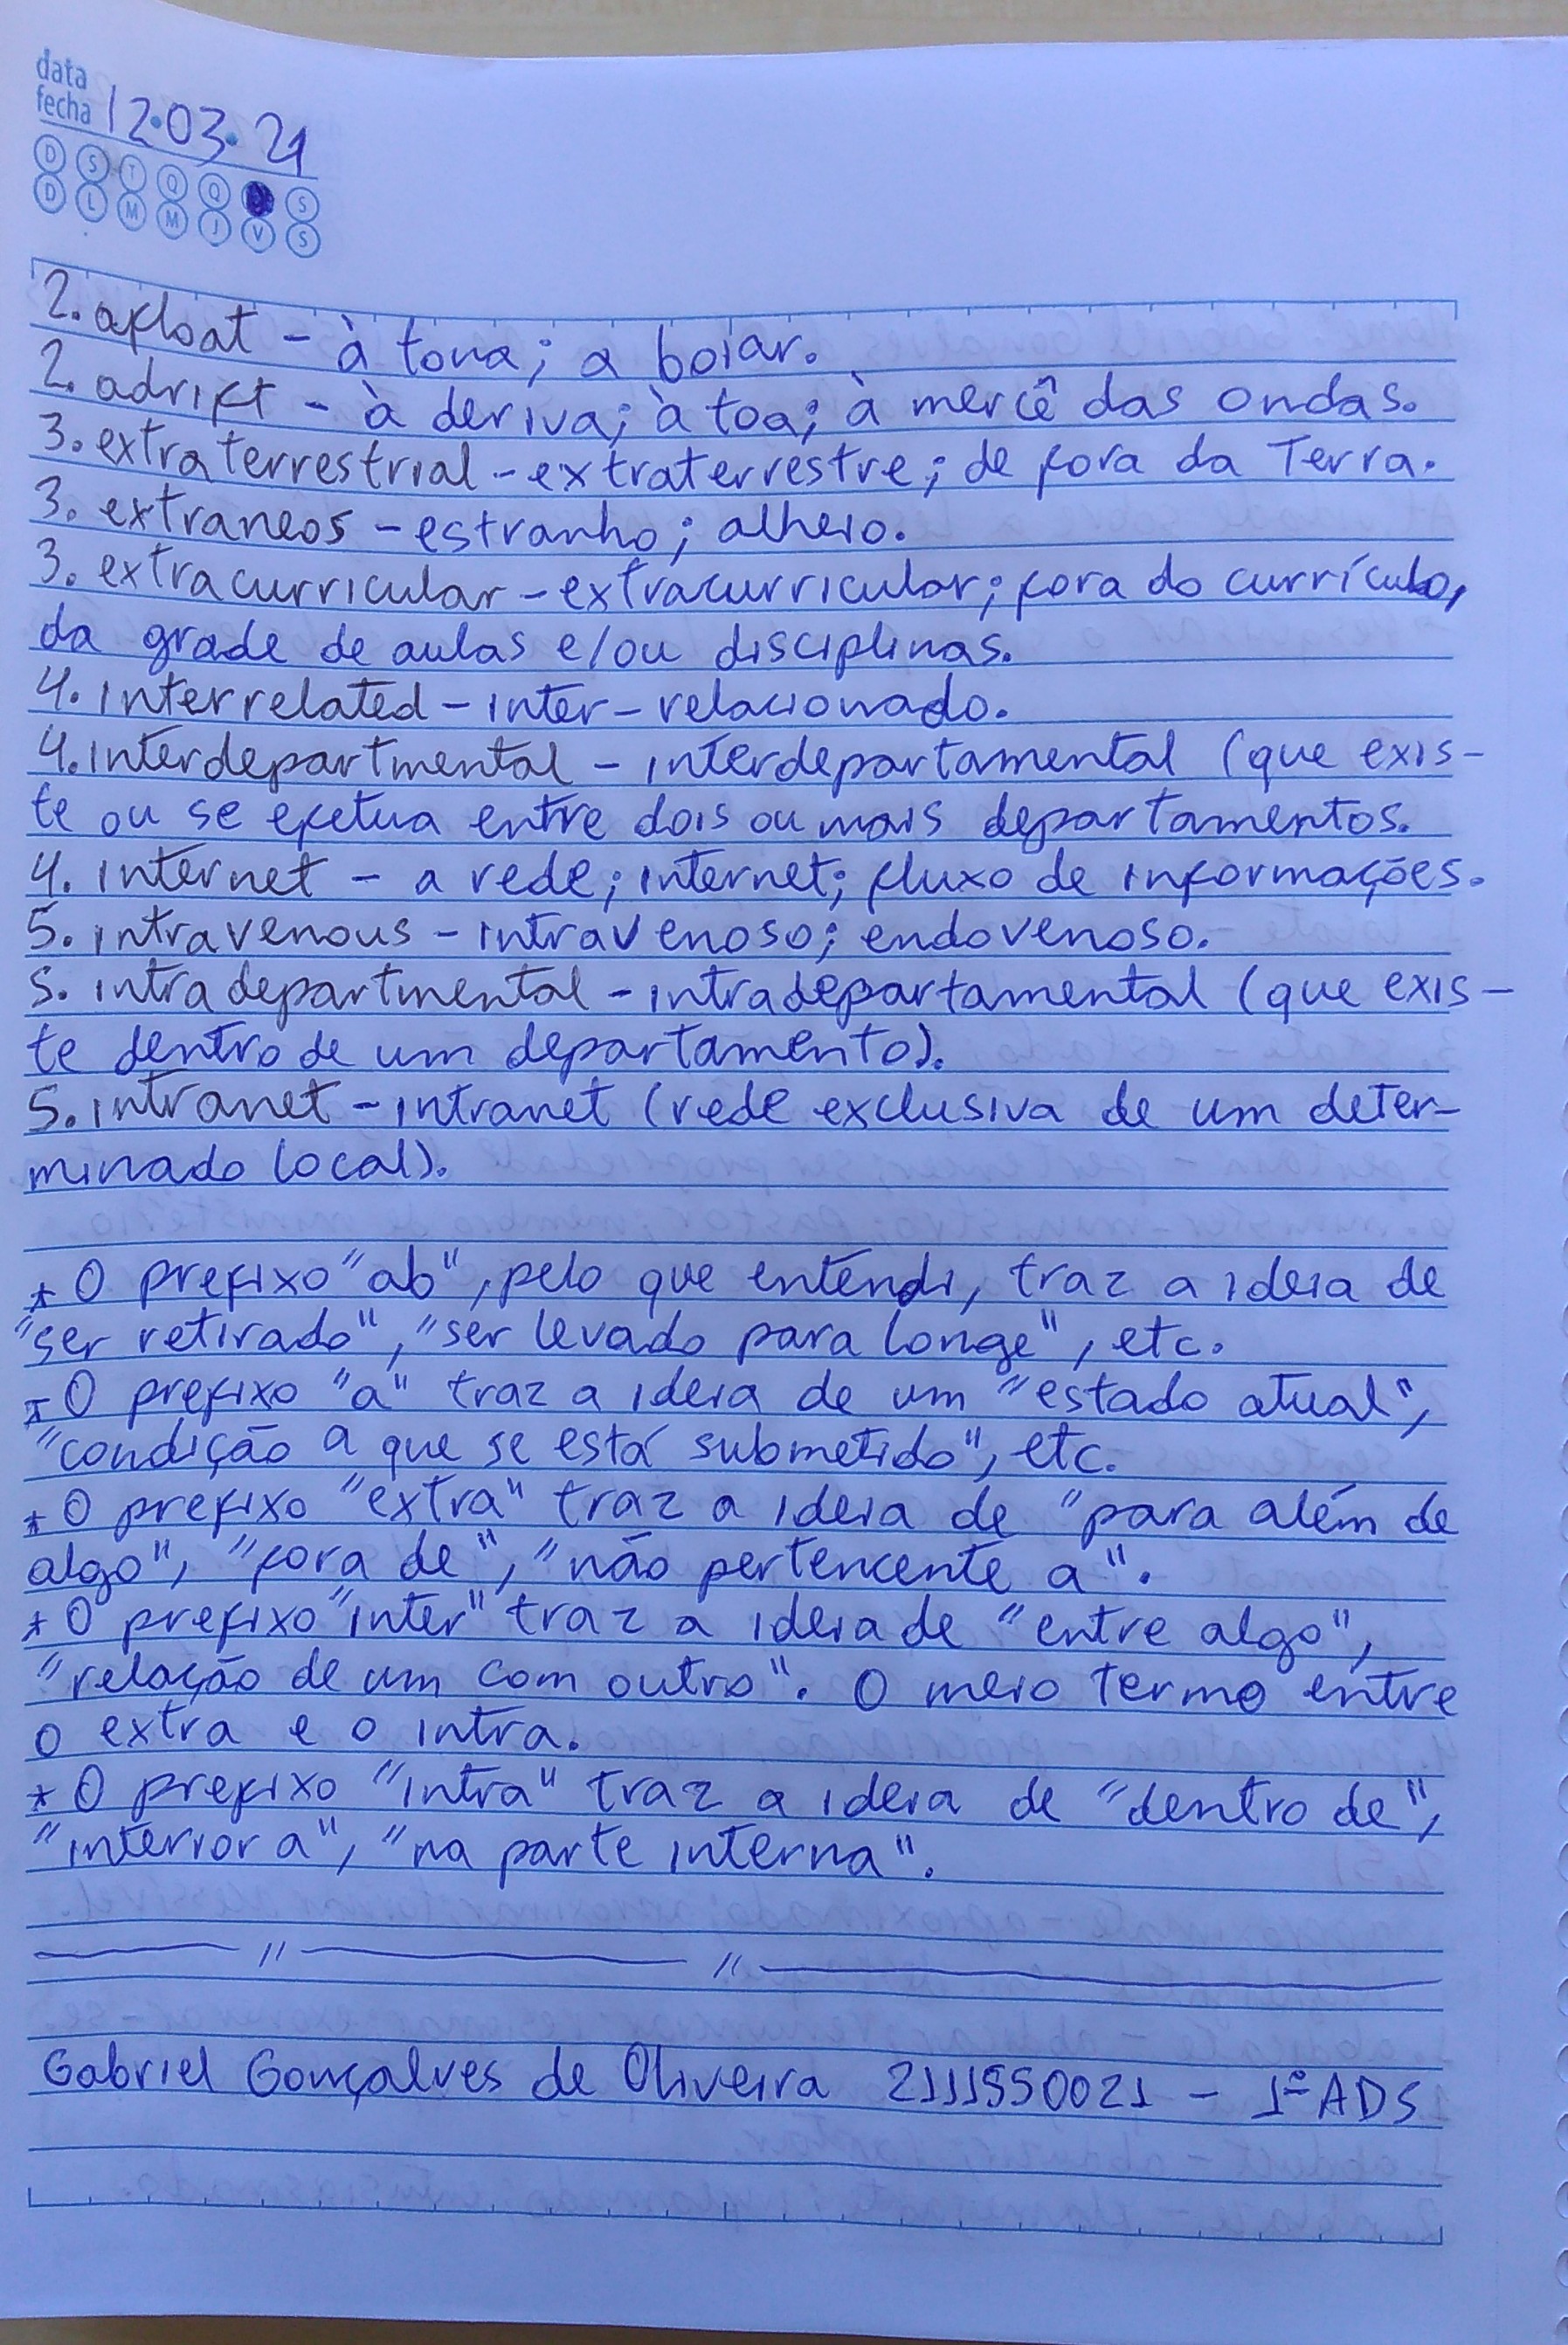 data
fecha 12.03.21
D S T Q Q S
D L M M J V S
2. afloat - à tona; a boiar.
2. adrift - à deriva; à toa; à mercê das ondas.
3. extraterrestrial - extraterrestre; de fora da Terra.
3. extraneos - estranho; alheio.
3. extracurricular - extracurricular; fora do currículo,
da grade de aulas e/ou disciplinas.
4. interrelated - inter-relacionado.
4. interdepartmental - interdepartamental (que exis-
te ou se efetua entre dois ou mais departamentos.
4. internet - a rede; internet; fluxo de informações.
5. intravenous - intravenoso; endovenoso.
5. intradepartmental - intradepartamental (que exis-
te dentro de um departamento).
5. intranet - intranet (rede exclusiva de um deter-
minado local).
* O prefixo "ab", pelo que entendi, traz a ideia de
"ser retirado", "ser levado para longe", etc.
* O prefixo "a" traz a ideia de um "estado atual",
"condição a que se está submetido", etc.
* O prefixo "extra" traz a ideia de "para além de
algo", "fora de", "não pertencente a".
* O prefixo "inter" traz a ideia de "entre algo",
"relação de um com outro". O meio termo entre
o extra e o intra.
* O prefixo "intra" traz a ideia de "dentro de",
"interior a", "na parte interna".
Gabriel Gonçalves de Oliveira 2111550021 - 1º ADS